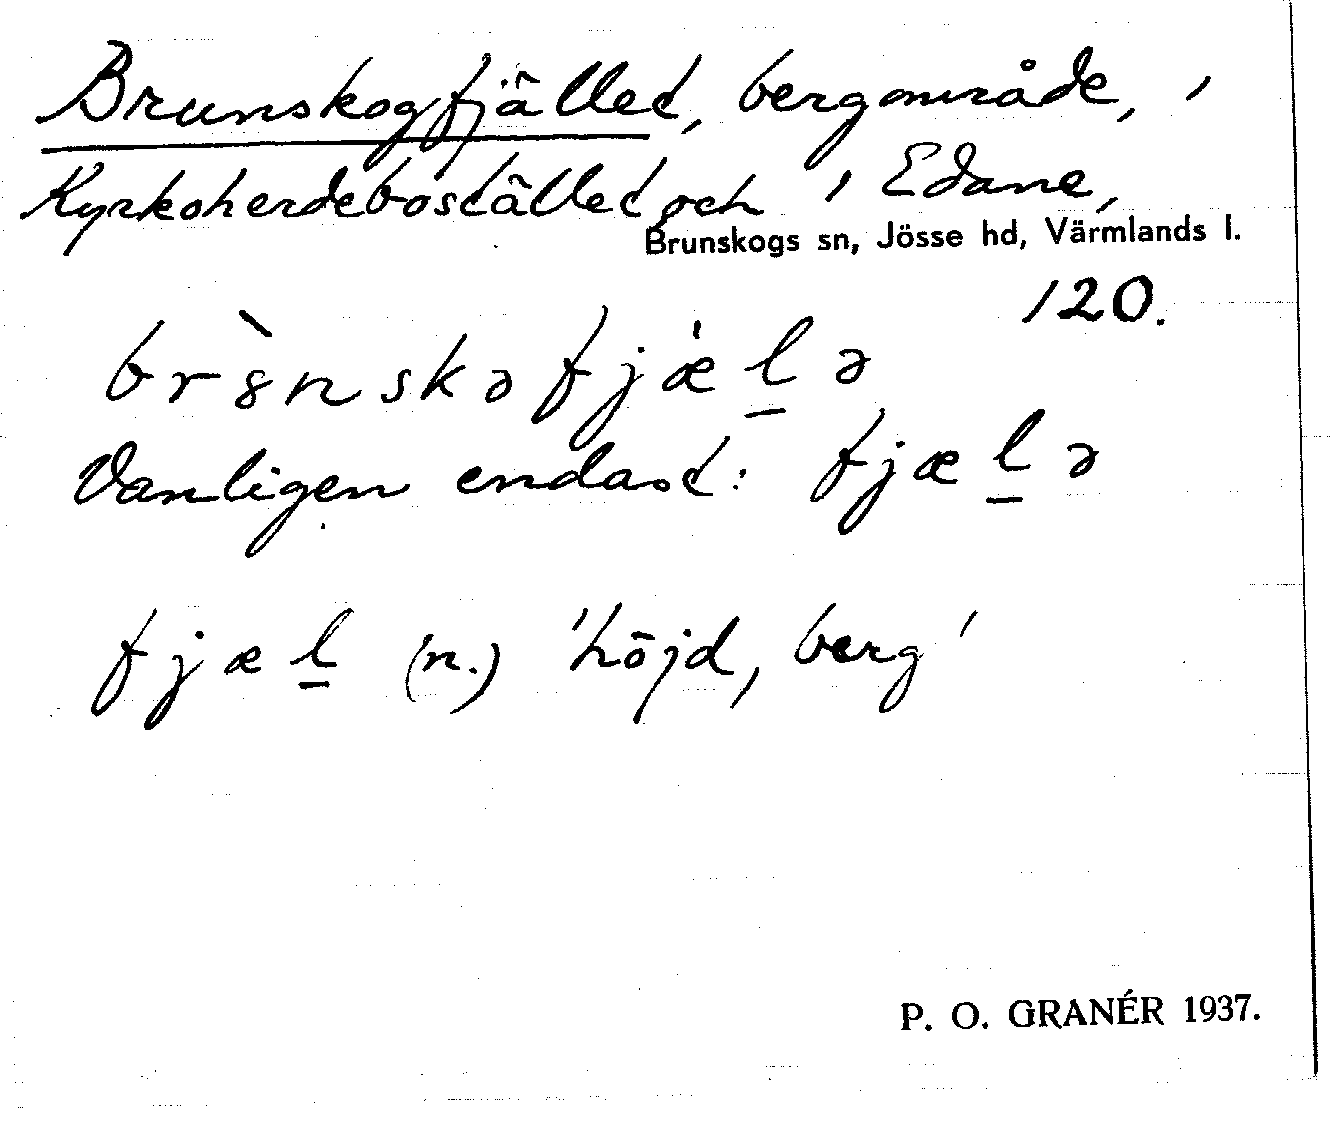 Brunskogfjället, bergområde, i
Kyrkoherdebostället och i Edane,
Brunskogs sn, Jösse hd, Värmlands l.
120.
br8̀nskəfjǽl̲ə
Vanligen endast: fjæl̲ə
fjæl̲ (n.) 'höjd, berg'
P. O. GRANÉR 1937.